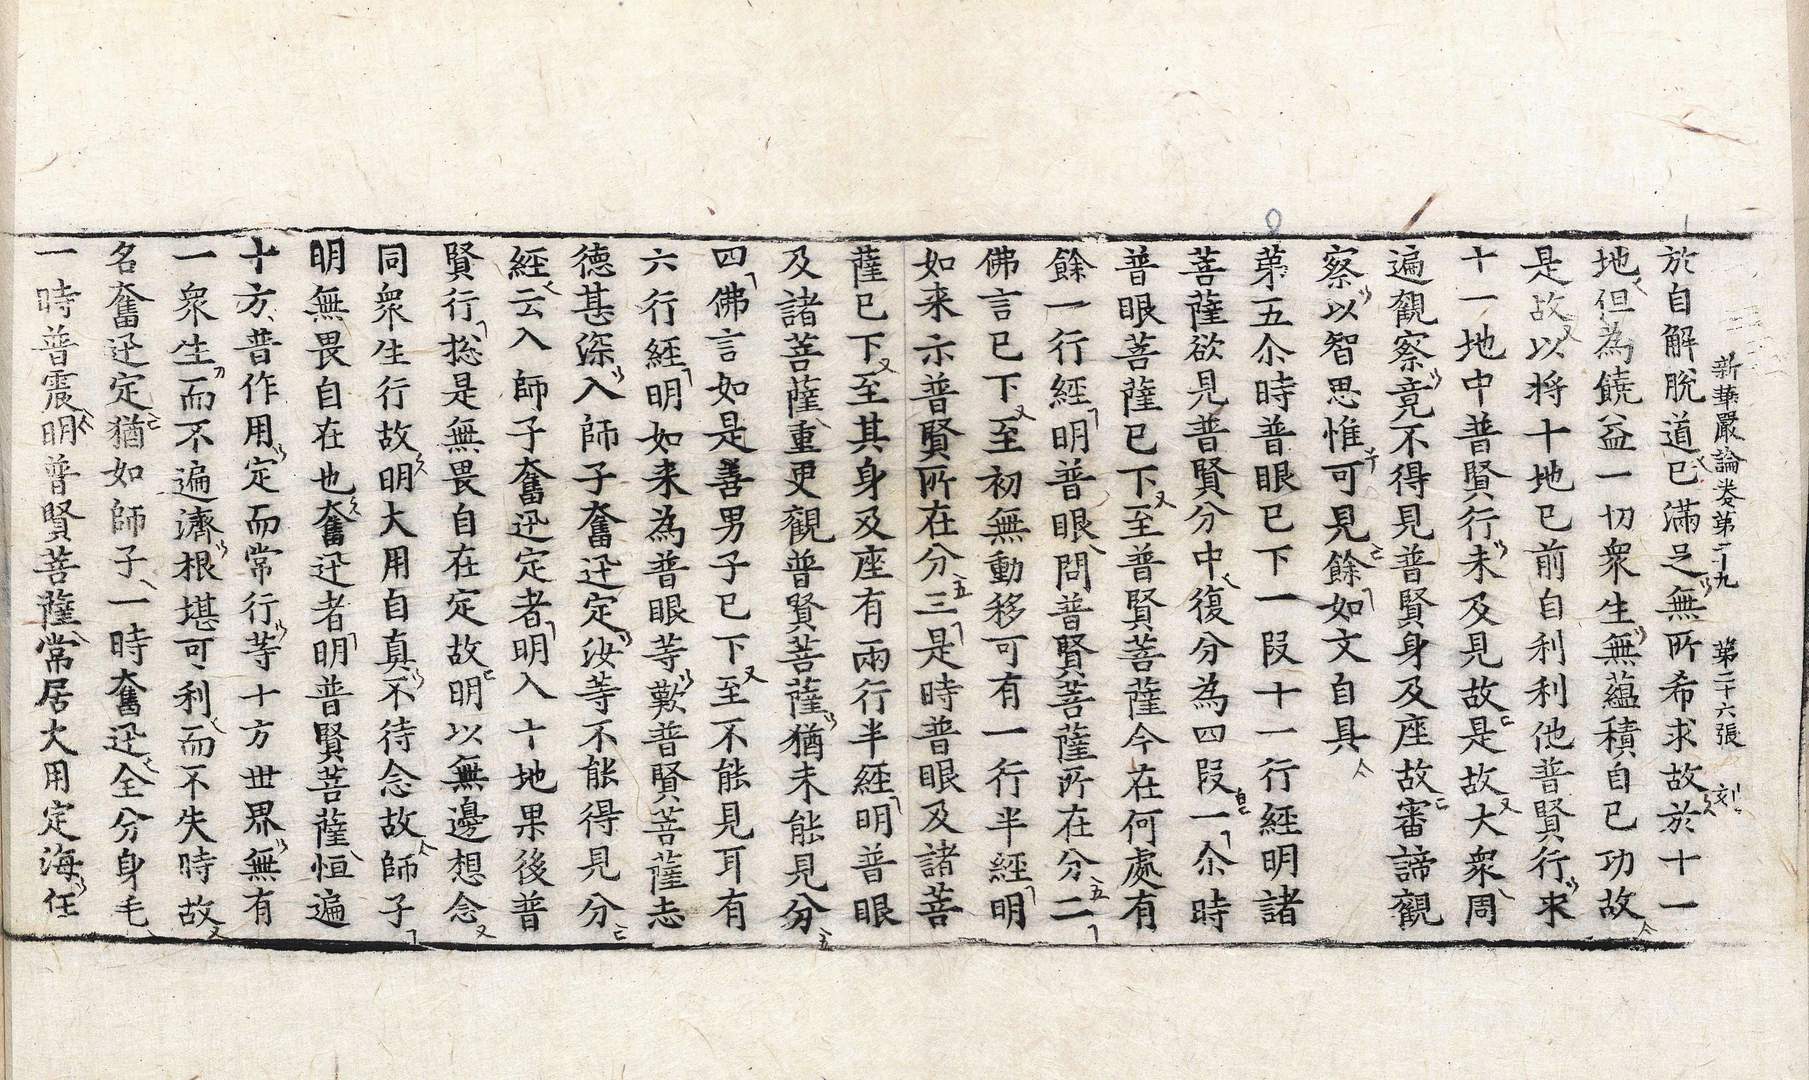 新華嚴論卷第二十九　第二十六張　刻
於自解脫道已滿足無所希求故於十一
地但為饒益一切衆生無蘊積自已功故
是故以将十地已前自利利他普賢行求
十一地中普賢行未及見故是故大衆周
遍觀察竟不得見普賢身及座故審諦觀
察以智思惟可見餘如文自具
苐五尒時普眼已下一段十一行經明諸
菩薩欲見普賢分中復分為四段一尒時
普眼菩薩已下至普賢菩薩今在何處有
餘一行經明普眼問普賢菩薩所在分二
佛言已下至初無動移可有一行半經明
如来示普賢所在分三是時普眼及諸菩
薩已下至其身及座有兩行半經明普眼
及諸菩薩重更觀普賢菩薩猶未能見分
四佛言如是善男子已下至不能見耳有
六行經明如来為普眼等歎普賢菩薩志
德甚深入師子奮迅定汝等不能得見分
經云入師子奮迅定者明入十地果後普
賢行揔是無畏自在定故明以無邊想念
同衆生行故明大用自真不待念故師子
明無畏自在也奮迅者明普賢菩薩恒遍
十方普作用定而常行等十方世界無有
一衆生而不遍濟根堪可利而不失時故
名奮迅定猶如師子一時奮迅全分身毛
一時普震明普賢菩薩常居大用定海任